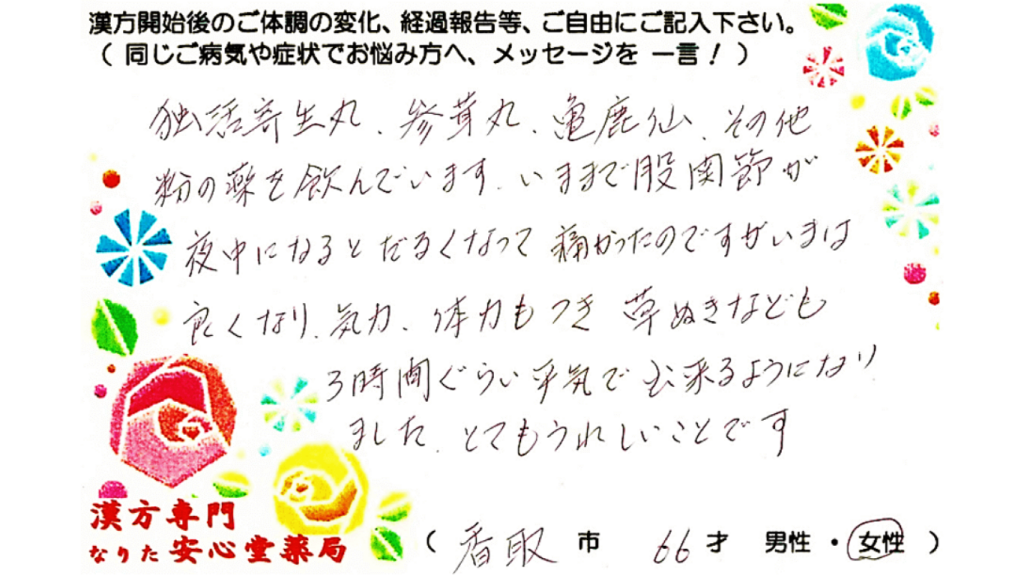 漢方開始後のご体調の変化、経過報告等、ご自由にご記入下さい。
( 同じご病気や症状でお悩み方へ、メッセージを 一言! )
独活寄生丸、参茸丸、亀鹿仙、その他
粉の薬を飲んでいます。いままで股関節が
夜中になるとだるくなって痛かったのですがいまは
良くなり、気力、体力もつき 草ぬきなども
3時間ぐらい平気で出来るようになり
ました。とてもうれしいことです
漢方専門
なりた 安心堂薬局
( 香取 市 66才 男性・女性 )